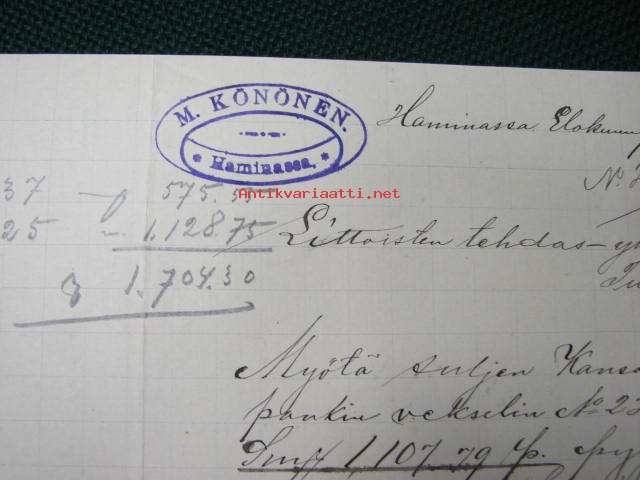 M. KÖNÖNEN.
* Haminassa. *
Haminassa Elokuun
No
37 — 575.55
25 — 1.128.75
1.704.30
Antikvariaatti.net
Littoisten tehdas-
Tu
Myötä suljen Kansa
pankin vekselin No 22
Smk 1,107.79 p.